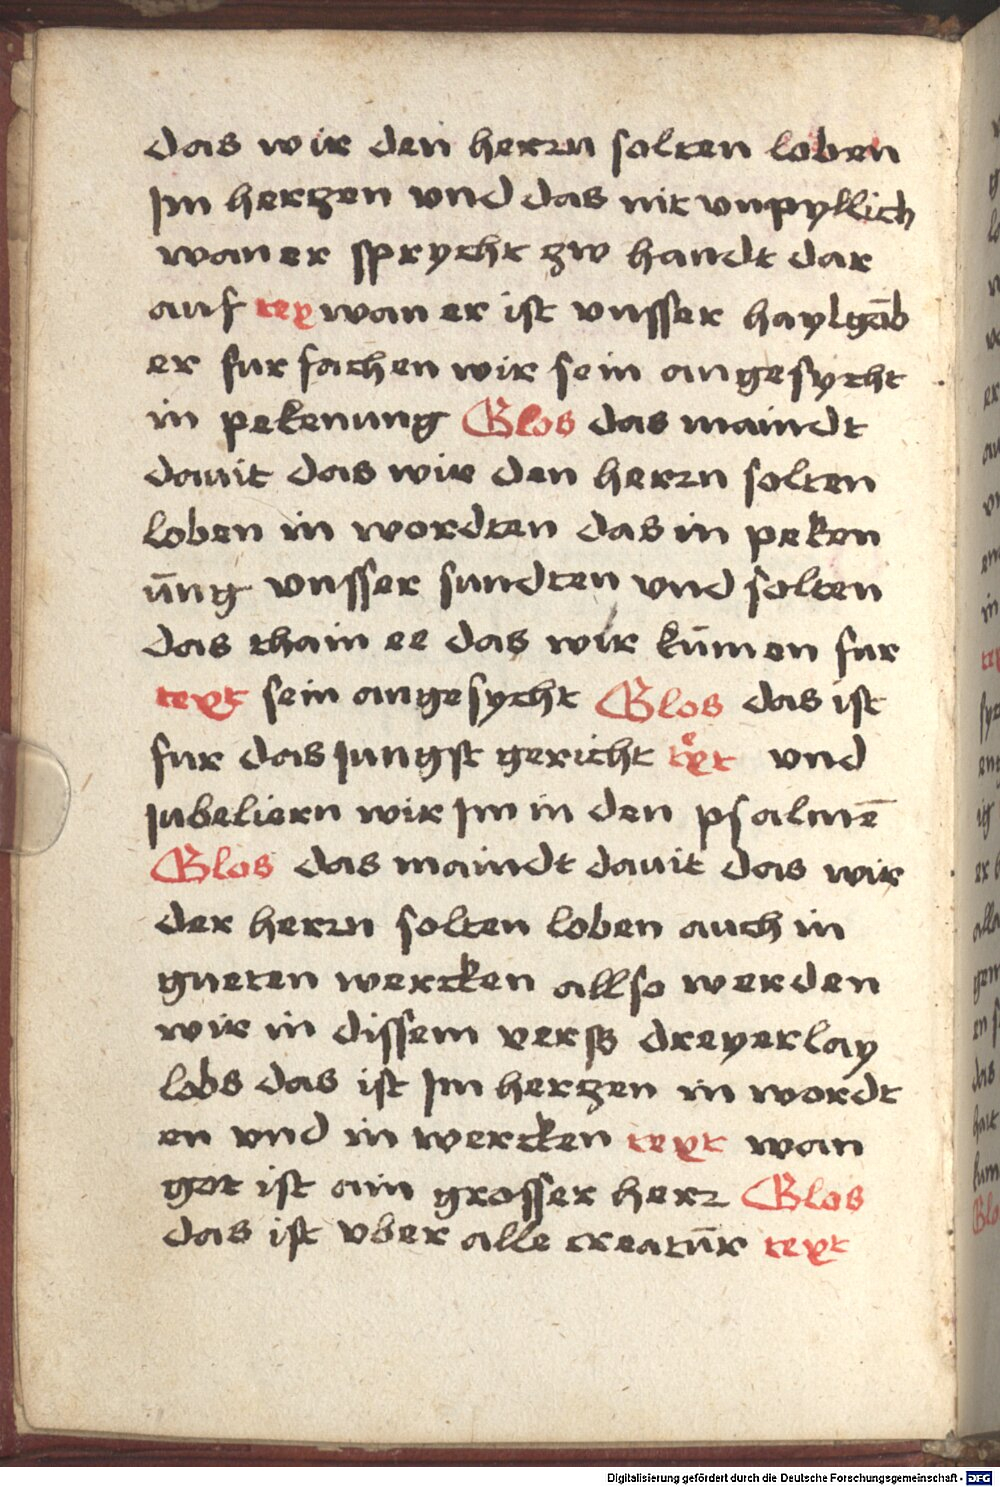 das wir den herrn solten loben
Im herczen vnd das nit vnpyllich
wan er sprycht zw handt dar
auf tex wan er ist vnsser haylgāb
er fur fachen wir sein angesycht
in pekenung Glos das maindt
dauit das wir den herrn solten
loben in wordten das in peken
ūng vnsser sundten vnd solten
das thain ee das wir kūmen fur
text sein angesycht Glos das ist
fur das Jungst gericht text vnd
Jubeliern wir Im in den psalmē
Glos das maindt dauit das wir
der herrn solten loben auch in
gueten wercken allso werden
wir in dissem versß dreyerlay
lobs das ist Im herczen in wordt
en vnd in wercken text wan
got ist ain grosser herr Glos
das ist vber alle creatūr text
Digitalisierung gefördert durch die Deutsche Forschungsgemeinschaft - DFG